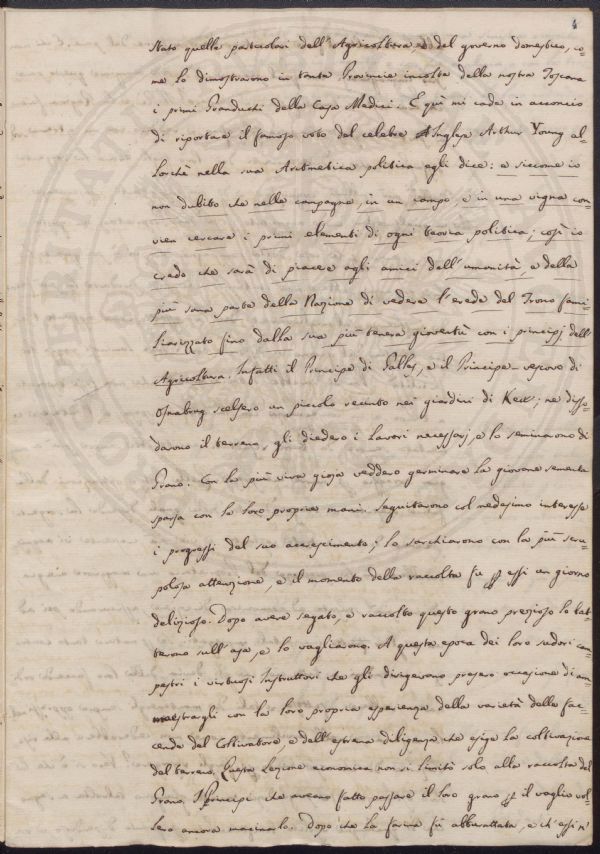 4
Stato quelle particolari dell'Agricoltura, e del governo domestico, co-
me lo dimostrarono in tante Provincie incolte della nostra Toscana
i primi Granduchi della Casa Medici. E quì mi cade in acconcio
di riportare il famoso voto del celebre Inglese Arthur Young al-
lorchè nella sua Aritmetica politica egli dice: e siccome io
non dubito che nelle campagne, in un campo, e in una vigna con-
vien cercare i primi elementi di ogni teoria politica; così io
credo che sarà di piacere agli amici dell'umanità, e della
più sana parte della Nazione di vedere l'erede del Trono fami-
liarizzato fino dalla sua più tenera gioventù con i principj dell'
Agricoltura. Infatti il Principe di Galles, e il Principe-vescovo di
Osnabrug scelsero un piccolo recinto nei giardini di Kew; ne disso-
darono il terreno, gli diedero i lavori necessarj, e lo seminarono di
Grano. Con la più viva gioja veddero germinare la giovane sementa
sparsa con le loro proprie mani. Seguitarono col medesimo interesse
i progressi del suo accrescimento; lo sarchiarono con la più scru-
polosa attenzione, e il momento della raccolta fu p essi un giorno
delizioso. Dopo avere segato, e raccolto questo grano prezioso lo bat-
terono sull'aja, e lo vagliarono. A questa epoca dei loro sudori cam-
pestri i virtuosi Instruttori che gli dirigevano presero occasione di am-
maestrargli con la loro propria esperienza della varietà delle fac-
cende del Coltivatore, e dell'estrema diligenza che esige la coltivazione
del terreno. Questa Lezione economica non si limitò solo alla raccolta del
Grano. I Principi che aveano fatto passare il loro grano p il vaglio vol-
lero ancora macinarlo. Dopo che la farina fu abburattata, e ch'essi n'